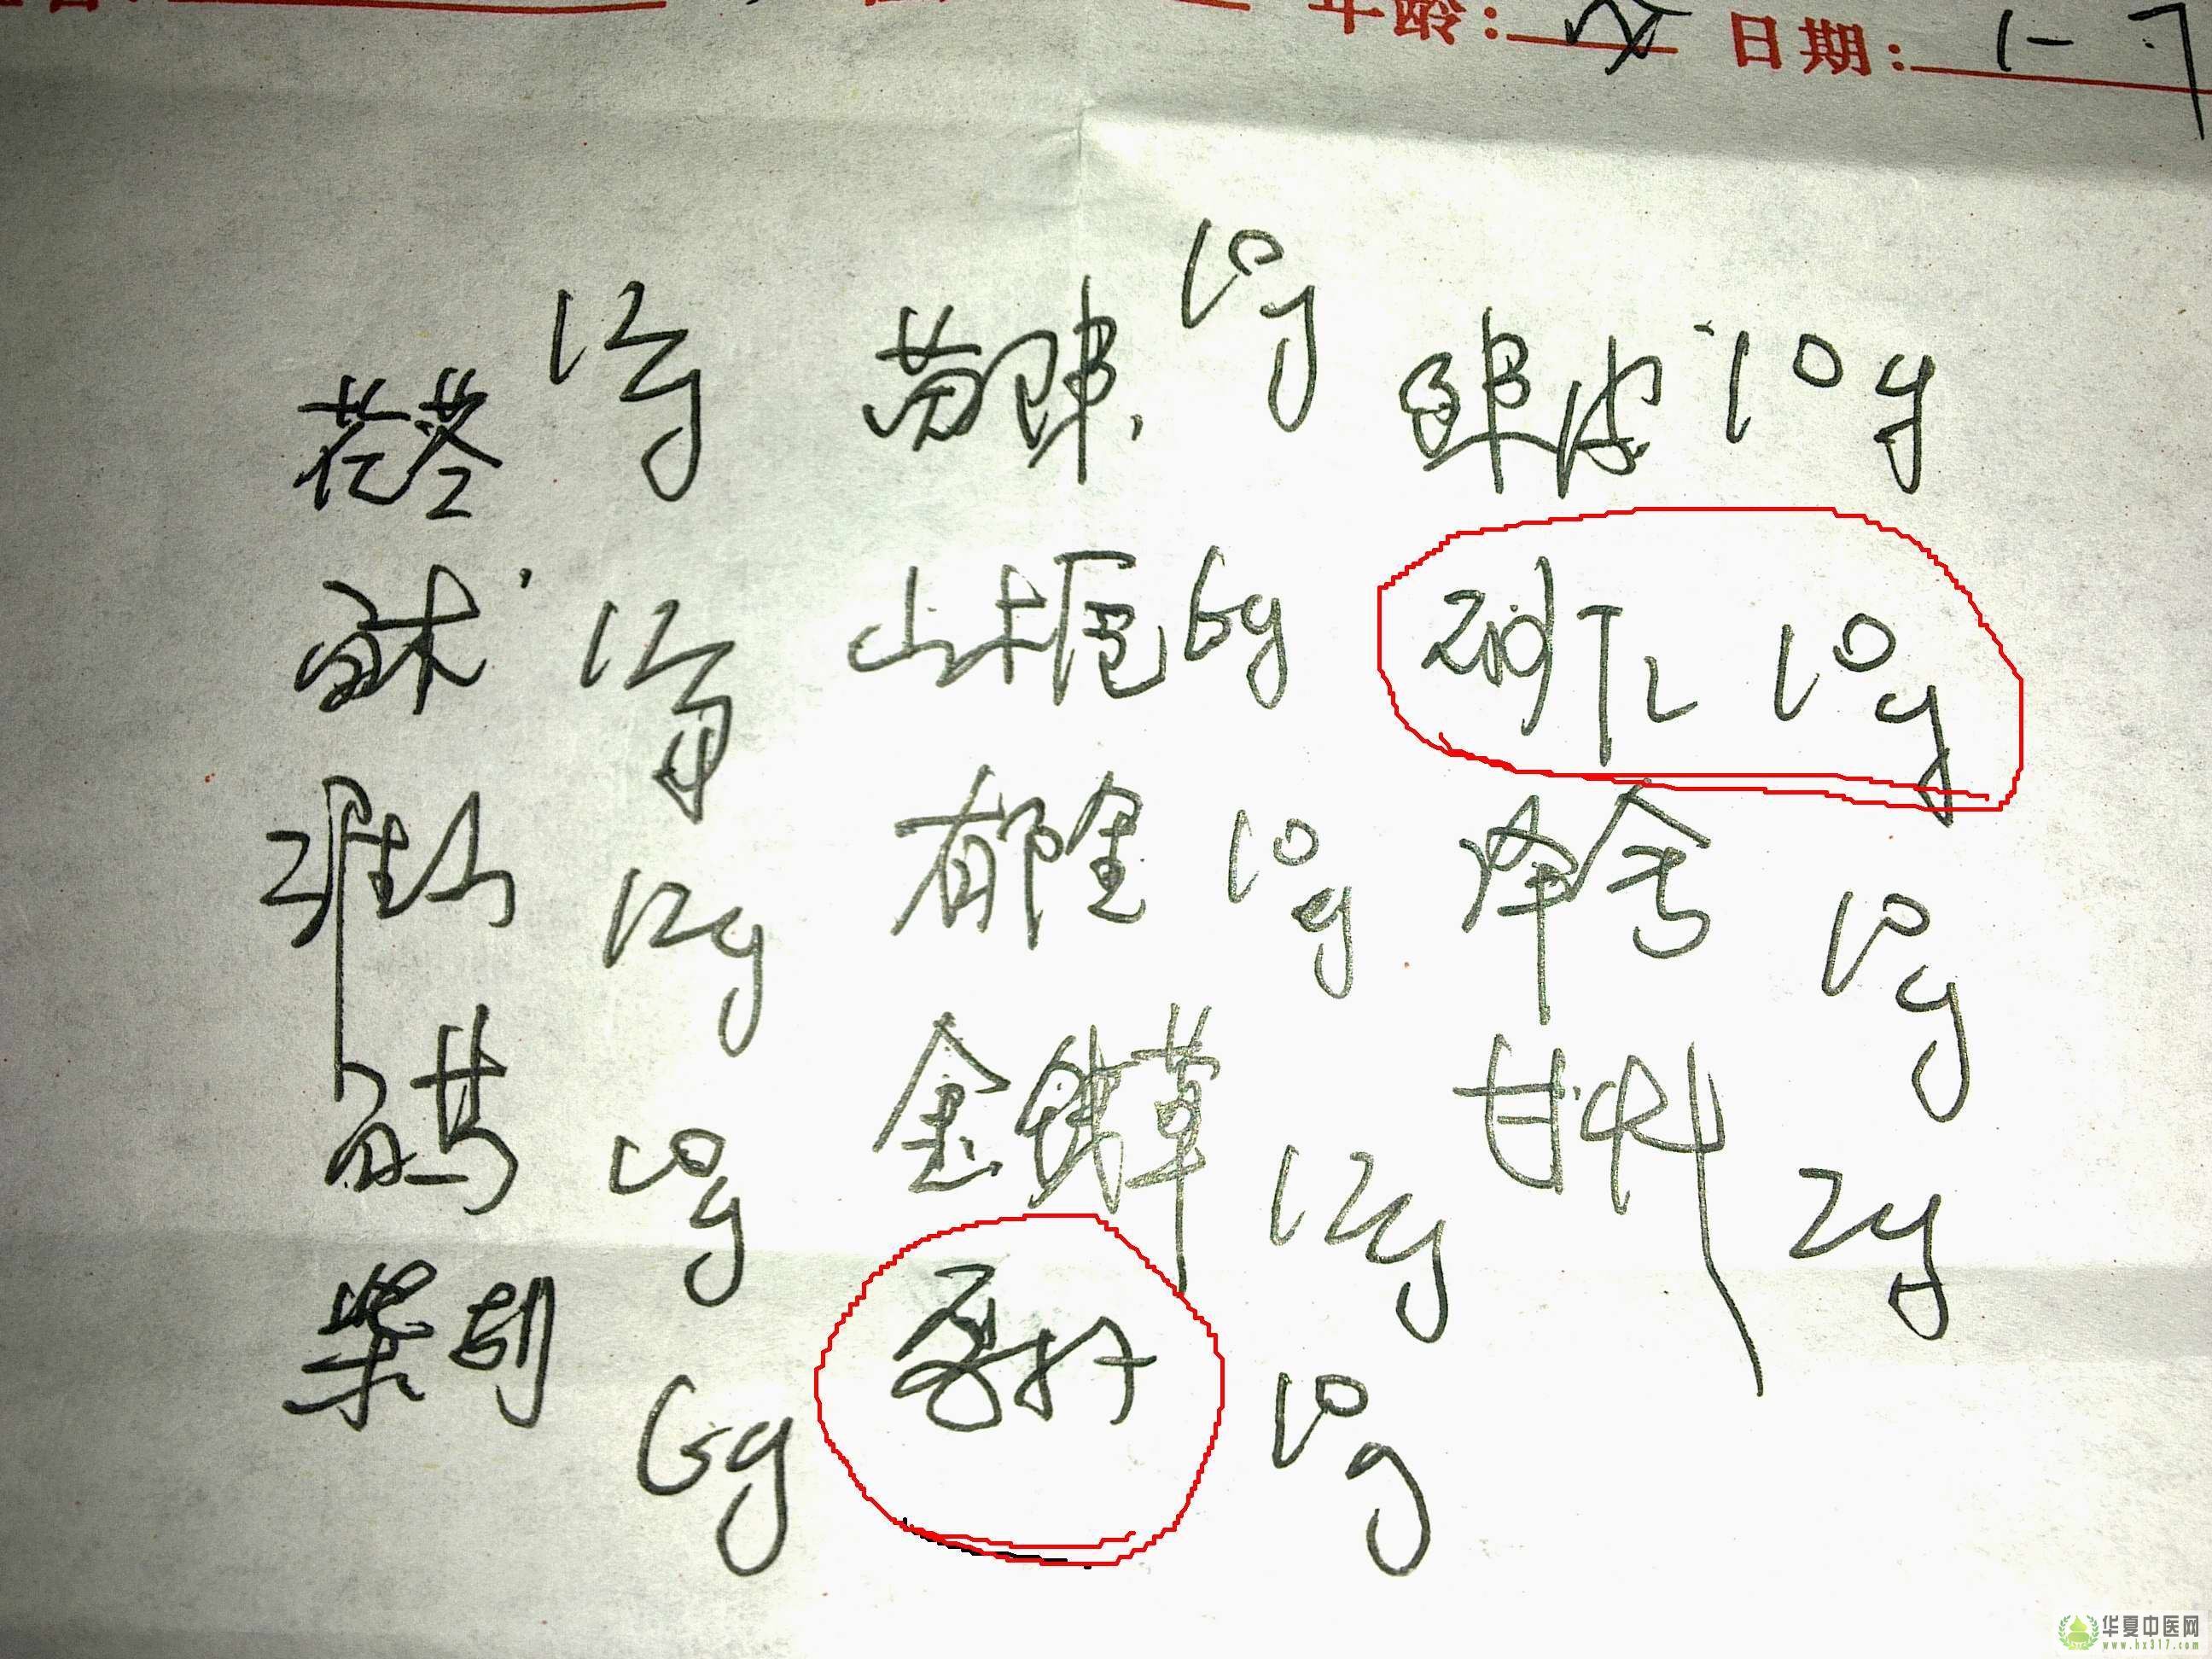 年龄: 日期: 1-7
茯苓 12g 茵陈 10g 陈皮 10g
白术 12g 山栀 6g
淮山 12g 郁金 10g 泽舍 10g
白芍 10g 金钱草 12g 甘草 2g
柴胡 6g 10g
10g
华夏中医网
www.hx317.com